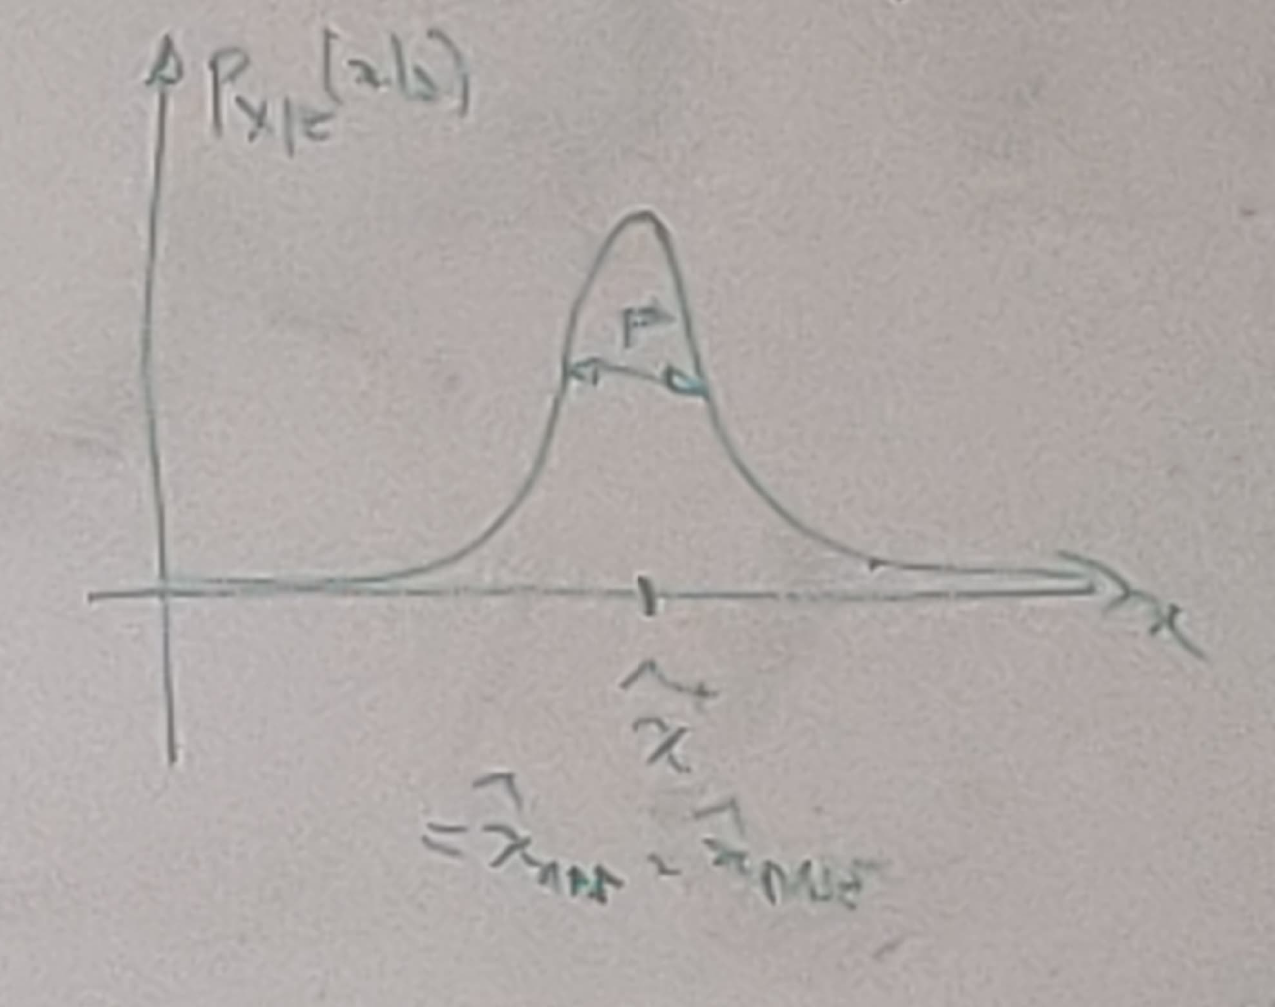 P_{X|Z}(x|z)
P
x
x̂
= x̂_{MAP} = x̂_{MMSE}